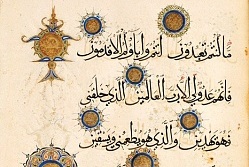 مَا كُنْتُمْ تَعْبُدُونَ أَنْتُمْ وَآبَاؤُكُمُ الْأَقْدَمُونَ
فَإِنَّهُمْ عَدُوٌّ لِي إِلَّا رَبَّ الْعَالَمِينَ الَّذِي خَلَقَنِي
فَهُوَ يَهْدِينِ وَالَّذِي هُوَ يُطْعِمُنِي وَيَسْقِينِ